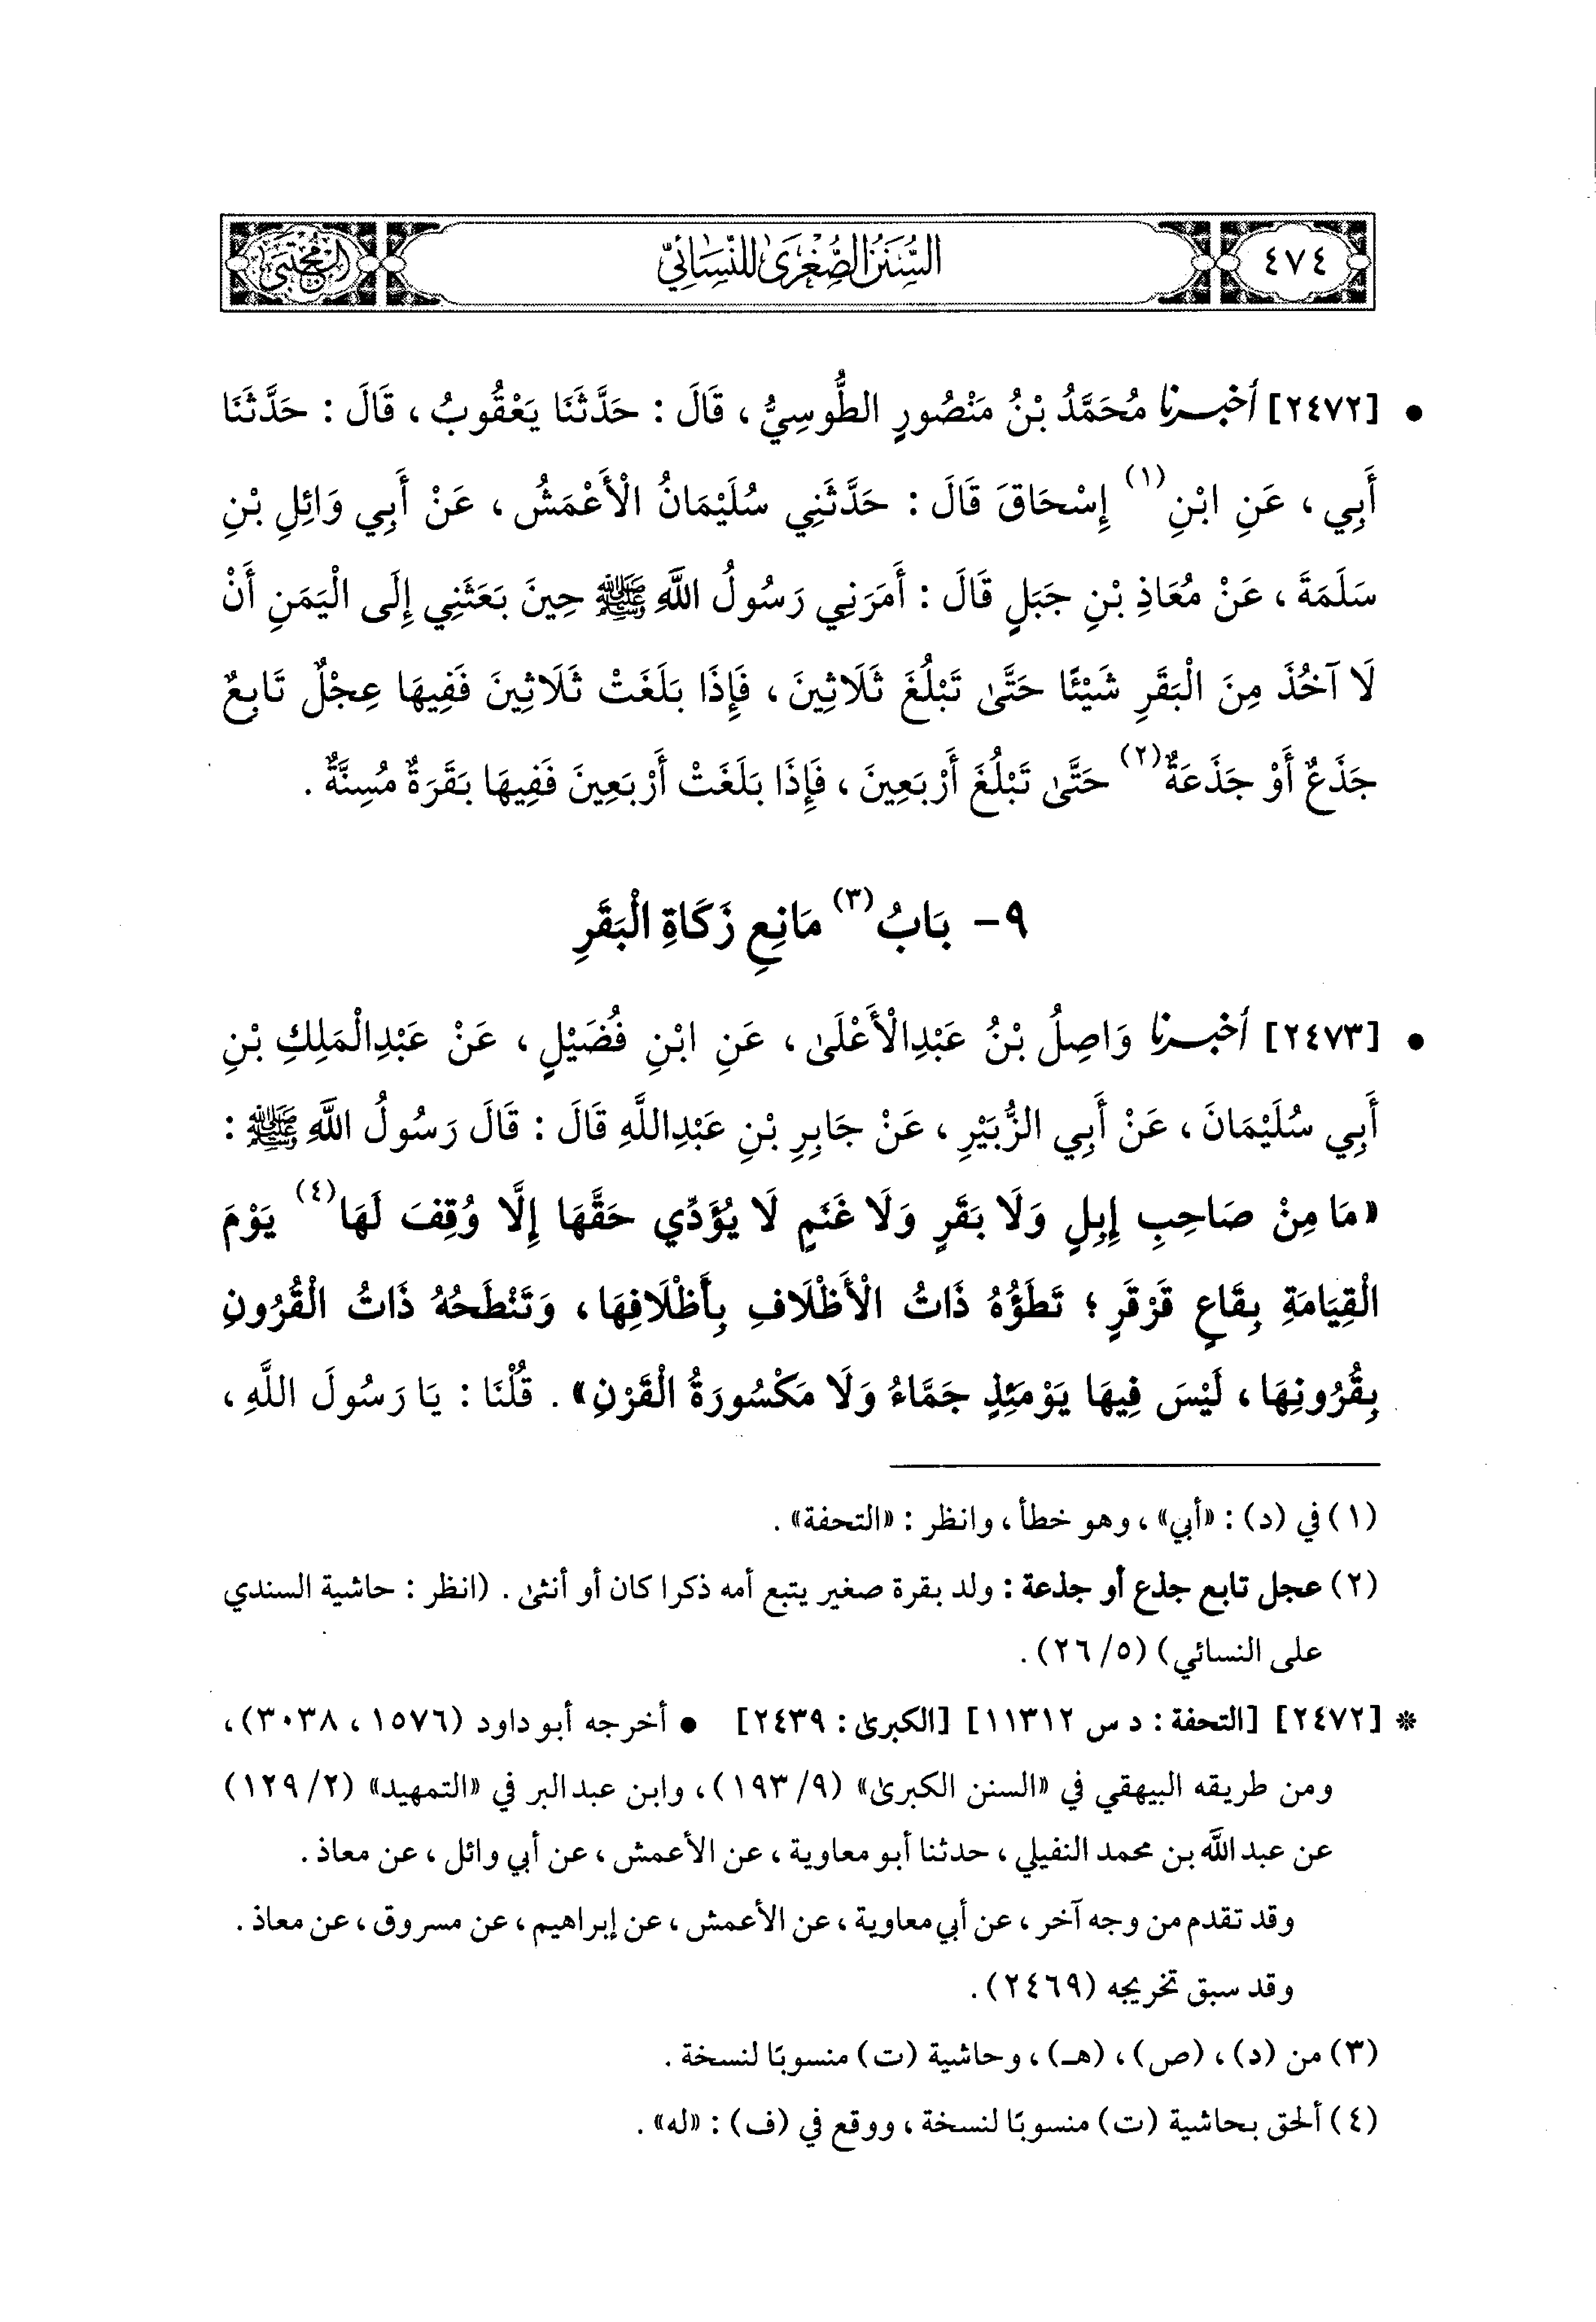 ٤٧٤
السُّنَنُ الصُّغْرَىٰ لِلنَّسَائِيِّ
المجتبى
• [٢٤٧٢] أخبرنا مُحَمَّدُ بْنُ مَنْصُورٍ الطُّوسِيُّ ، قَالَ : حَدَّثَنَا يَعْقُوبُ ، قَالَ : حَدَّثَنَا
أَبِي ، عَنِ ابْنِ(١) إِسْحَاقَ قَالَ : حَدَّثَنِي سُلَيْمَانُ الْأَعْمَشُ ، عَنْ أَبِي وَائِلِ بْنِ
سَلَمَةَ ، عَنْ مُعَاذِ بْنِ جَبَلٍ قَالَ : أَمَرَنِي رَسُولُ اللَّهِ ﷺ حِينَ بَعَثَنِي إِلَى الْيَمَنِ أَنْ
لَا آخُذَ مِنَ الْبَقَرِ شَيْئًا حَتَّىٰ تَبْلُغَ ثَلَاثِينَ ، فَإِذَا بَلَغَتْ ثَلَاثِينَ فَفِيهَا عِجْلٌ تَابِعٌ
جَذَعٌ أَوْ جَذَعَةٌ(٢) حَتَّىٰ تَبْلُغَ أَرْبَعِينَ ، فَإِذَا بَلَغَتْ أَرْبَعِينَ فَفِيهَا بَقَرَةٌ مُسِنَّةٌ .
٩- بَابُ(٣) مَانِعِ زَكَاةِ الْبَقَرِ
• [٢٤٧٣] أخبرنا وَاصِلُ بْنُ عَبْدِالْأَعْلَىٰ ، عَنِ ابْنِ فُضَيْلٍ ، عَنْ عَبْدِالْمَلِكِ بْنِ
أَبِي سُلَيْمَانَ ، عَنْ أَبِي الزُّبَيْرِ ، عَنْ جَابِرِ بْنِ عَبْدِاللَّهِ قَالَ : قَالَ رَسُولُ اللَّهِ ﷺ :
«مَا مِنْ صَاحِبِ إِبِلٍ وَلَا بَقَرٍ وَلَا غَنَمٍ لَا يُؤَدِّي حَقَّهَا إِلَّا وُقِفَ لَهَا(٤) يَوْمَ
الْقِيَامَةِ بِقَاعٍ قَرْقَرٍ ؛ تَطَؤُهُ ذَاتُ الْأَظْلَافِ بِأَظْلَافِهَا ، وَتَنْطَحُهُ ذَاتُ الْقُرُونِ
بِقُرُونِهَا ، لَيْسَ فِيهَا يَوْمَئِذٍ جَمَّاءُ وَلَا مَكْسُورَةُ الْقَرْنِ» . قُلْنَا : يَا رَسُولَ اللَّهِ ،
(١) في (د) : «أبي» ، وهو خطأ ، وانظر : «التحفة» .
(٢) عجل تابع جذع أو جذعة : ولد بقرة صغير يتبع أمه ذكرا كان أو أنثىٰ . (انظر : حاشية السندي
على النسائي) (٥/ ٢٦) .
* [٢٤٧٢] [التحفة : د س ١١٣١٢] [الكبرىٰ : ٢٤٣٩] • أخرجه أبو داود (١٥٧٦ ، ٣٠٣٨) ،
ومن طريقه البيهقي في «السنن الكبرىٰ» (٩/ ١٩٣) ، وابن عبدالبر في «التمهيد» (٢/ ١٢٩)
عن عبدالله بن محمد النفيلي ، حدثنا أبو معاوية ، عن الأعمش ، عن أبي وائل ، عن معاذ .
وقد تقدم من وجه آخر ، عن أبي معاوية ، عن الأعمش ، عن إبراهيم ، عن مسروق ، عن معاذ .
وقد سبق تخريجه (٢٤٦٩) .
(٣) من (د) ، (ص) ، (هـ) ، وحاشية (ت) منسوبًا لنسخة .
(٤) ألحق بحاشية (ت) منسوبًا لنسخة ، ووقع في (ف) : «له» .